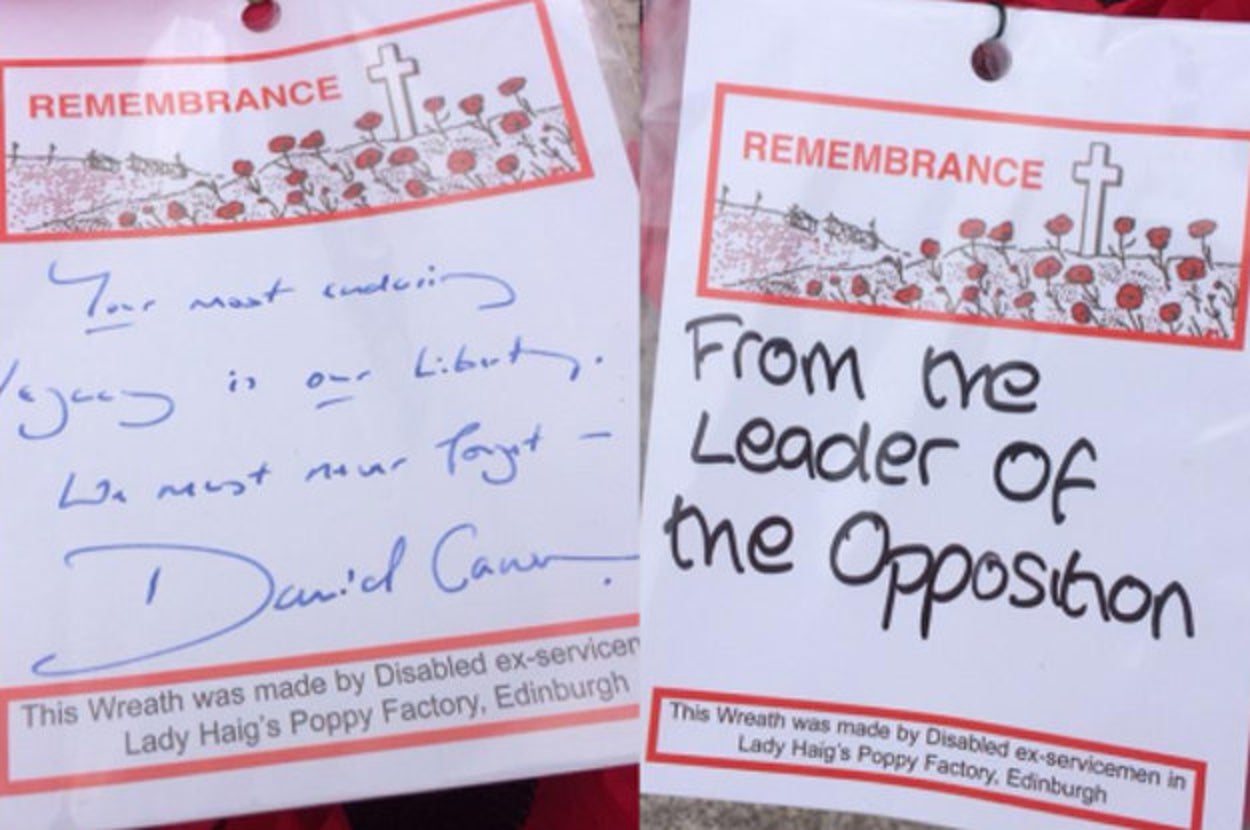 REMEMBRANCE
Your most enduring
legacy is our Liberty.
We must never forget –
David Cameron
This Wreath was made by Disabled ex-servicen
Lady Haig's Poppy Factory, Edinburgh
REMEMBRANCE
From the
Leader of
the Opposition
This Wreath was made by Disabled ex-servicemen in
Lady Haig's Poppy Factory, Edinburgh